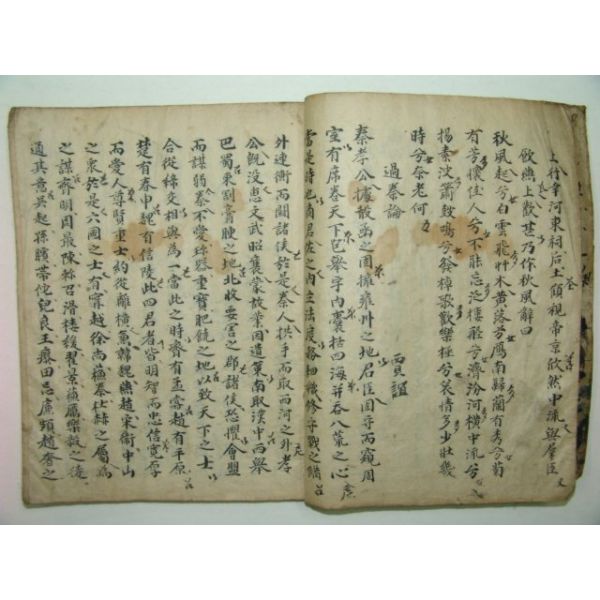 上行幸河東祠后土顧視帝京欣然中流與群臣
飮燕上歡甚乃作秋風辭曰
秋風起兮白雲飛草木黃落兮鴈南歸蘭有秀兮菊
有芳懷佳人兮不能忘泛樓舡兮濟汾河橫中流兮
揚素波簫鼓鳴兮發棹歌歡樂極兮哀情多少壯幾
時兮奈老何
過秦論
賈誼
秦孝公據殽函之固擁雍州之地君臣固守而窺周
室有席卷天下包擧宇內囊括四海幷吞八荒之心
當是時也商君佐之內立法度務耕織修守戰之備
外連衡而鬪諸侯於是秦人拱手而取西河之外孝
公旣沒惠文武昭襄蒙故業因遺策南取漢中西擧
巴蜀東割膏腴之地北收要害之郡諸侯恐懼會盟
而謀弱秦不愛珍器重寶肥饒之地以致天下之士
合從締交相與爲一當此之時齊有孟嘗趙有平原
楚有春申魏有信陵此四君者皆明智而忠信寬厚
而愛人尊賢重士約從離橫兼韓魏燕趙宋衛中山
之衆於是六國之士有甯越徐尙蘇秦杜赫之屬爲
之謀齊明周最陳軫召滑樓緩翟景蘇厲樂毅之徒
通其意吳起孫臏帶佗兒良王廖田忌廉頗趙奢之